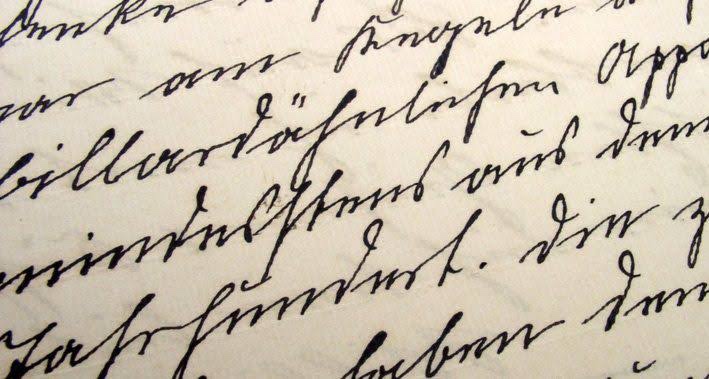 denke
war am Kegeln
billardähnlichen Appa
mindestens aus dem
Jahrhundert. Die z
haben den